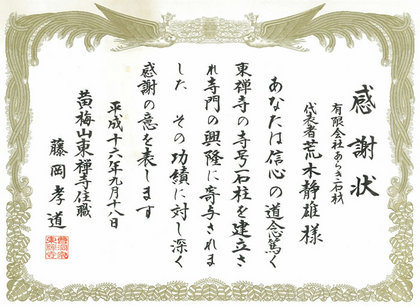 感謝状
有限会社あらき石材
代表者荒木静雄様
あなたは信心の道念篤く
東禅寺の寺号石柱を建立さ
れ寺門の興隆に寄与されま
した その功績に対し深く
感謝の意を表します
平成十六年九月十八日
黄梅山東禅寺住職
藤岡孝道